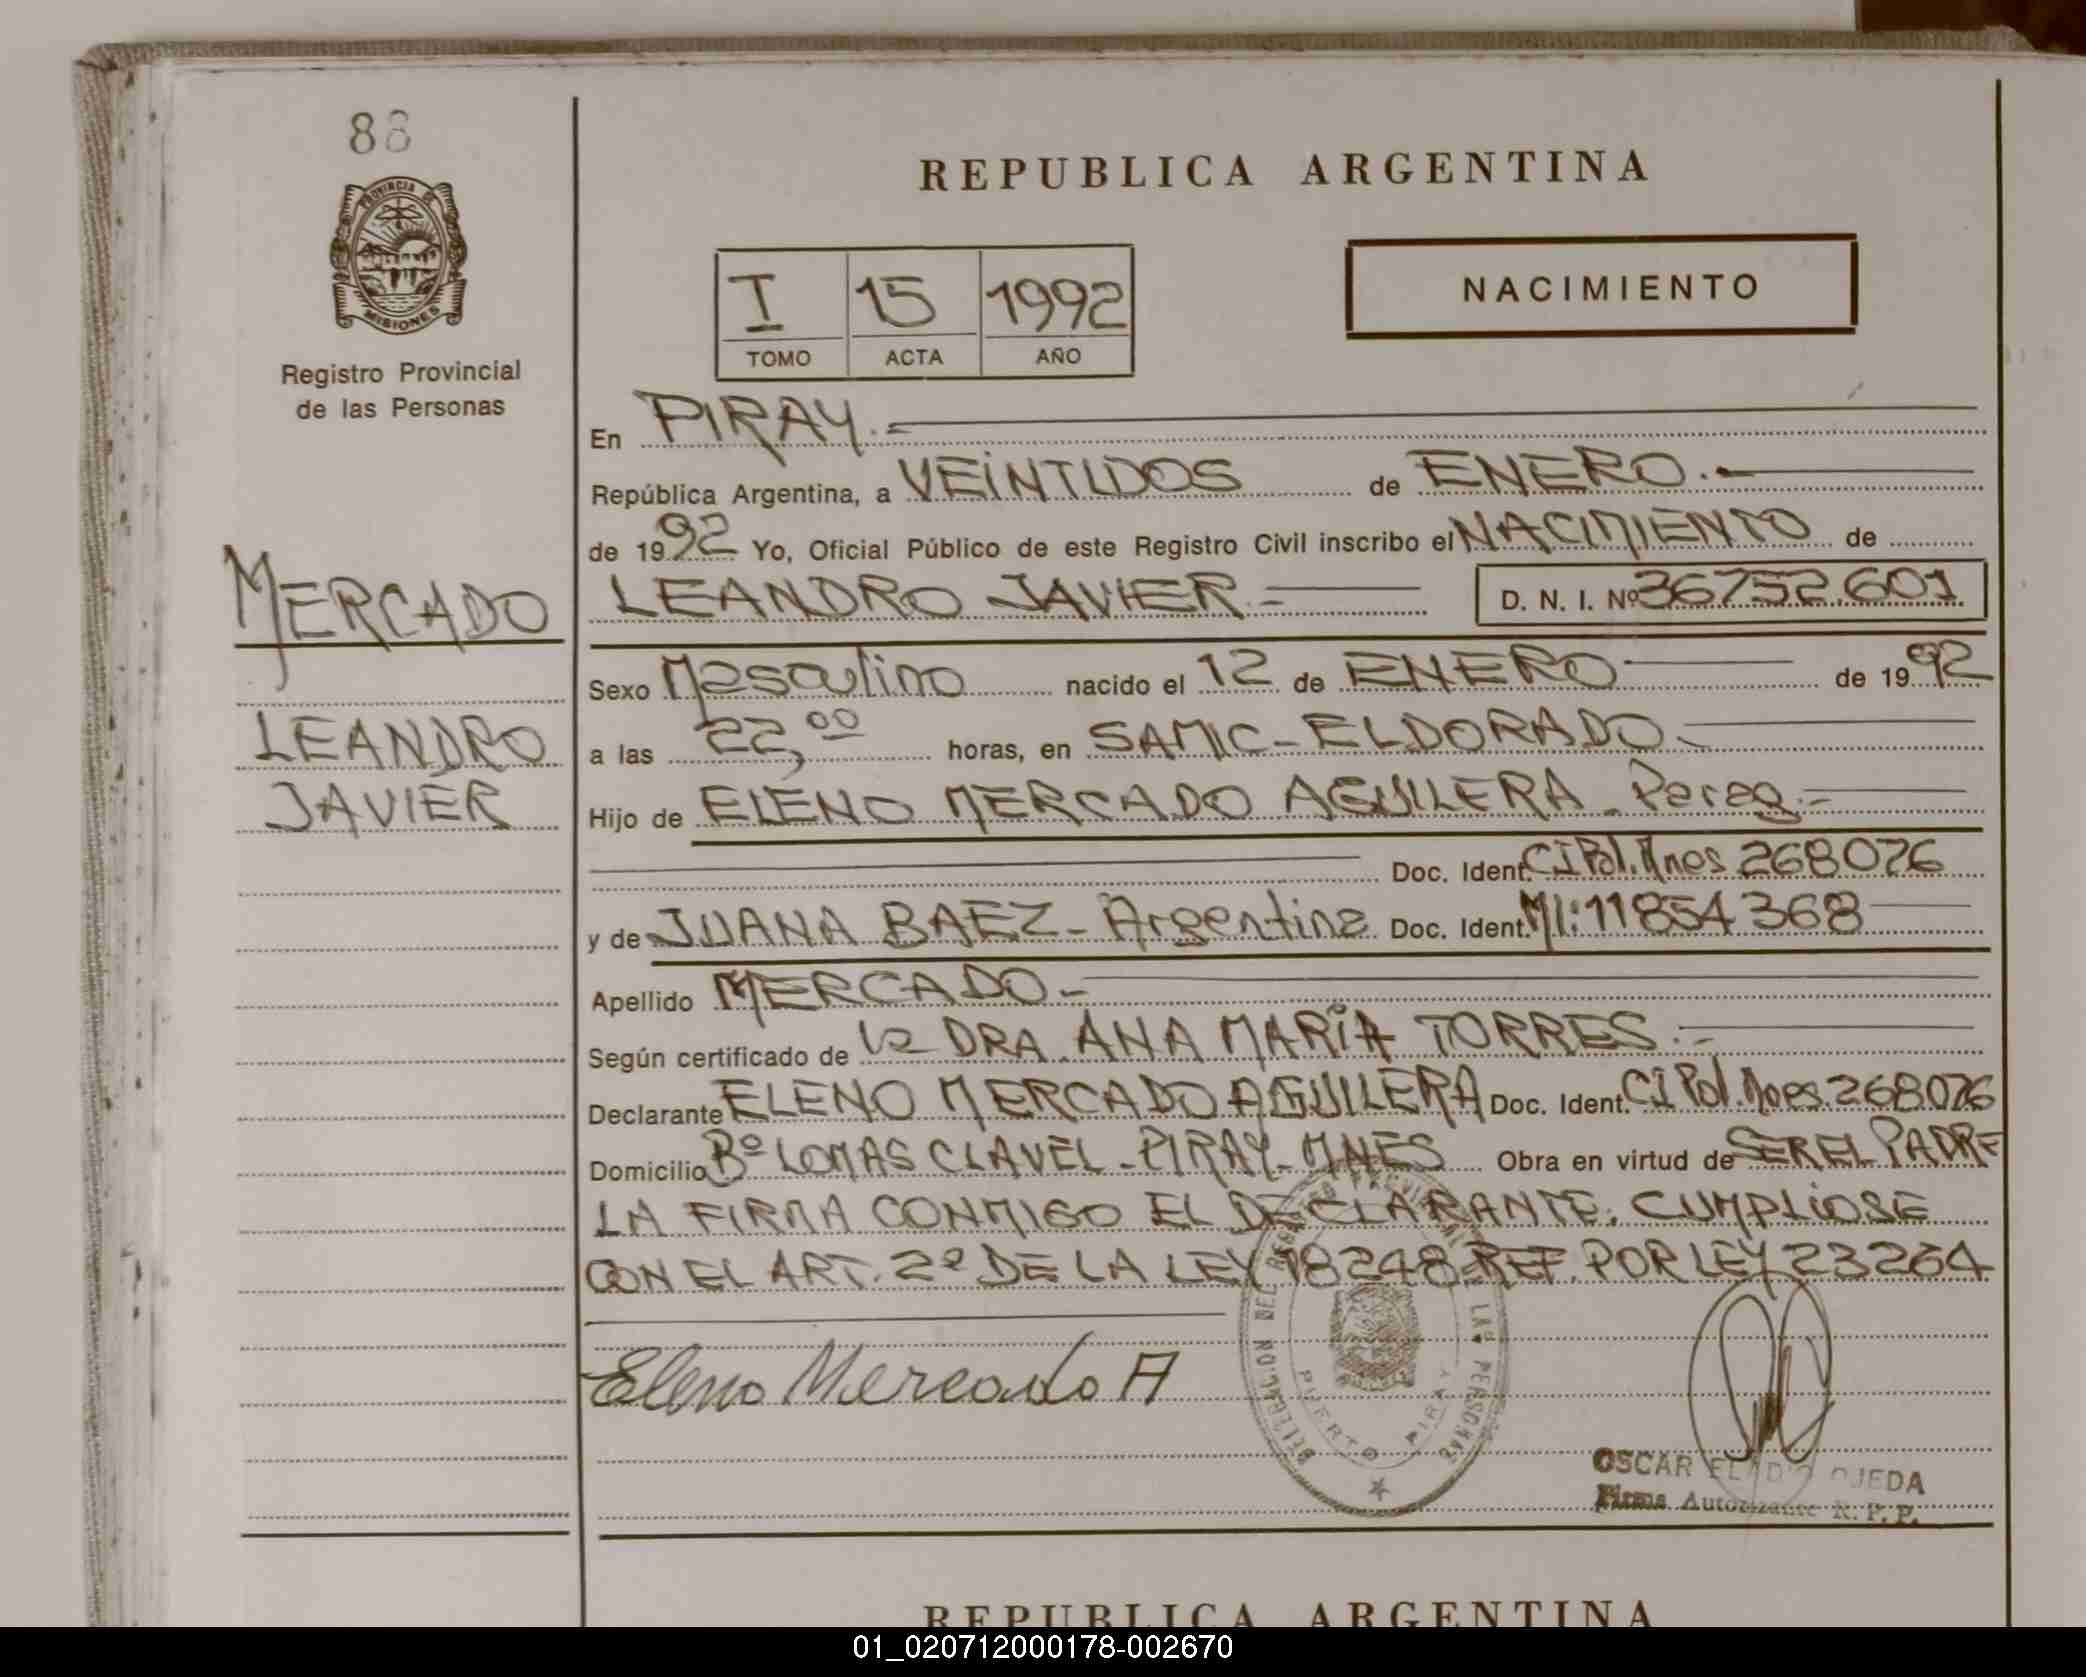 88
PROVINCIA DE
MISIONES
Registro Provincial
de las Personas
MERCADO
LEANDRO
JAVIER
REPUBLICA ARGENTINA
I 15 1992
TOMO ACTA AÑO
NACIMIENTO
En PIRAY.-
República Argentina, a VEINTIDOS de ENERO.-
de 1992 Yo, Oficial Público de este Registro Civil inscribo el NACIMIENTO de
LEANDRO JAVIER.- D. N. I. Nº 36752.601
Sexo Masculino nacido el 12 de ENERO de 1992
a las 22,00 horas, en SAMIC-ELDORADO-
Hijo de ELENO MERCADO AGUILERA - Parag.-
Doc. Ident. CI Pol. Mnes 268076
y de JUANA BAEZ- Argentina Doc. Ident. MI: 11854368
Apellido MERCADO-
Según certificado de la DRA. ANA MARIA TORRES.-
Declarante ELENO MERCADO AGUILERA Doc. Ident. CI Pol. Mnes. 268.076
Domicilio Bº LOMAS CLAVEL - PIRAY - MNES Obra en virtud de SER EL PADRE
LA FIRMA CONMIGO EL DECLARANTE. CUMPLIOSE
CON EL ART. 2º DE LA LEY 18248 REF. POR LEY 23264
Eleno Mercado A
DELEGACION DEL REGISTRO PROVINCIAL DE LAS PERSONAS
PUERTO PIRAY
OSCAR ELADIO OJEDA
Firma Autorizante R. P. P.
REPUBLICA ARGENTINA
01_020712000178-002670